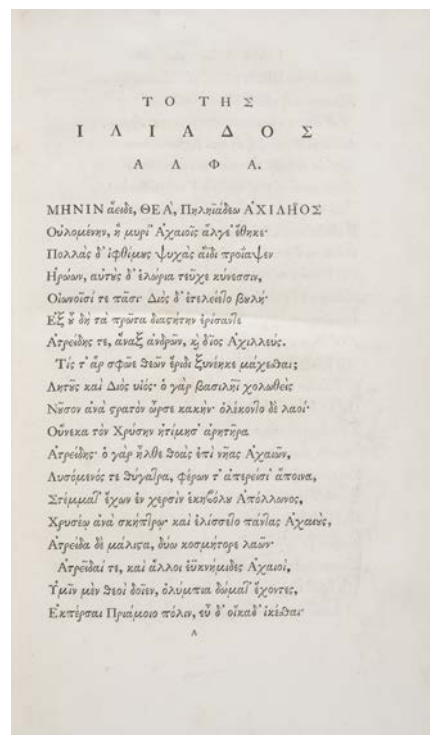 ΤΟ ΤΗΣ
ΙΛΙΑΔΟΣ
ΑΛΦΑ.
ΜΗΝΙΝ ἄειδε, ΘΕΑ', Πηληϊάδεω ΑΧΙΛΗΟΣ
Οὐλομένην, ἣ μυρί' Αχαιοῖς ἄλγε' ἔθηκε·
Πολλὰς δ' ἰφθίμους ψυχὰς ἄϊδι προΐαψεν
Ηρώων, αὐτοὺς δ' ἑλώρια τεῦχε κύνεσσιν,
Οἰωνοῖσί τε πᾶσι· Διὸς δ' ἐτελείετο βουλή·
Εξ οὗ δὴ τὰ πρῶτα διαστήτην ἐρίσαντε
Ατρείδης τε, ἄναξ ἀνδρῶν, καὶ δῖος Αχιλλεύς.
Τίς τ' ἄρ σφῶε θεῶν ἔριδι ξυνέηκε μάχεσθαι;
Λητοῦς καὶ Διὸς υἱός· ὁ γὰρ βασιλῆϊ χολωθεὶς
Νοῦσον ἀνὰ στρατὸν ὦρσε κακήν· ὀλέκοντο δὲ λαοί·
Οὕνεκα τὸν Χρύσην ἠτίμησ' ἀρητῆρα
Ατρείδης· ὁ γὰρ ἦλθε θοὰς ἐπὶ νῆας Αχαιῶν,
Λυσόμενός τε θύγατρα, φέρων τ' ἀπερείσι' ἄποινα,
Στέμματ' ἔχων ἐν χερσὶν ἑκηβόλου Απόλλωνος,
Χρυσέῳ ἀνὰ σκήπτρῳ· καὶ ἐλίσσετο πάντας Αχαιοὺς,
Ατρείδα δὲ μάλιστα, δύω κοσμήτορε λαῶν·
Ατρεῖδαί τε, καὶ ἄλλοι ἐϋκνήμιδες Αχαιοὶ,
Υμῖν μὲν θεοὶ δοῖεν, ὀλύμπια δώματ' ἔχοντες,
Εκπέρσαι Πριάμοιο πόλιν, εὖ δ' οἴκαδ' ἱκέσθαι·
Α